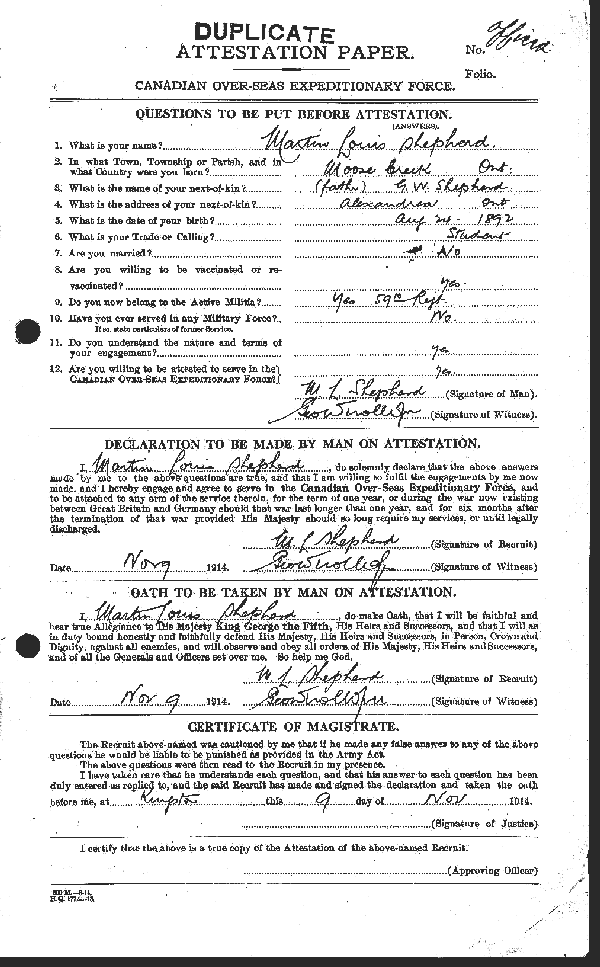 DUPLICATE
ATTESTATION PAPER.
No. Officer
Folio.
CANADIAN OVER-SEAS EXPEDITIONARY FORCE.
QUESTIONS TO BE PUT BEFORE ATTESTATION.
(ANSWERS).
1. What is your name? Martin Louis Shepherd.
2. In what Town, Township or Parish, and in
what Country were you born? Moose Creek Ont.
3. What is the name of your next-of-kin? (father) G. W. Shepherd
4. What is the address of your next-of-kin? Alexandria Ont
5. What is the date of your birth? Aug 24 - 1892
6. What is your Trade or Calling? Student
7. Are you married? No
8. Are you willing to be vaccinated or re-
vaccinated? Yes.
9. Do you now belong to the Active Militia? Yes 59th Regt.
10. Have you ever served in any Military Force? No.
If so, state particulars of former Service.
11. Do you understand the nature and terms of
your engagement? Yes
12. Are you willing to be attested to serve in the
CANADIAN OVER-SEAS EXPEDITIONARY FORCE? Yes
M L Shepherd (Signature of Man).
(Signature of Witness).
DECLARATION TO BE MADE BY MAN ON ATTESTATION.
I, Martin Louis Shepherd, do solemnly declare that the above answers
made by me to the above questions are true, and that I am willing to fulfil the engagements by me now
made, and I hereby engage and agree to serve in the Canadian Over-Seas Expeditionary Force, and
to be attached to any arm of the service therein, for the term of one year, or during the war now existing
between Great Britain and Germany should that war last longer than one year, and for six months after
the termination of that war provided His Majesty should so long require my services, or until legally
discharged.
M L Shepherd (Signature of Recruit)
Date Nov 9 1914. (Signature of Witness)
OATH TO BE TAKEN BY MAN ON ATTESTATION.
I, Martin Louis Shepherd, do make Oath, that I will be faithful and
bear true Allegiance to His Majesty King George the Fifth, His Heirs and Successors, and that I will as
in duty bound honestly and faithfully defend His Majesty, His Heirs and Successors, in Person, Crown and
Dignity, against all enemies, and will observe and obey all orders of His Majesty, His Heirs and Successors,
and of all the Generals and Officers set over me. So help me God.
M L Shepherd (Signature of Recruit)
Date Nov 9 1914. (Signature of Witness)
CERTIFICATE OF MAGISTRATE.
The Recruit above-named was cautioned by me that if he made any false answer to any of the above
questions he would be liable to be punished as provided in the Army Act.
The above questions were then read to the Recruit in my presence.
I have taken care that he understands each question, and that his answer to each question has been
duly entered as replied to, and the said Recruit has made and signed the declaration and taken the oath
before me, at Kingston this 9 day of Nov 1914.
(Signature of Justice)
I certify that the above is a true copy of the Attestation of the above-named Recruit.
(Approving Officer)